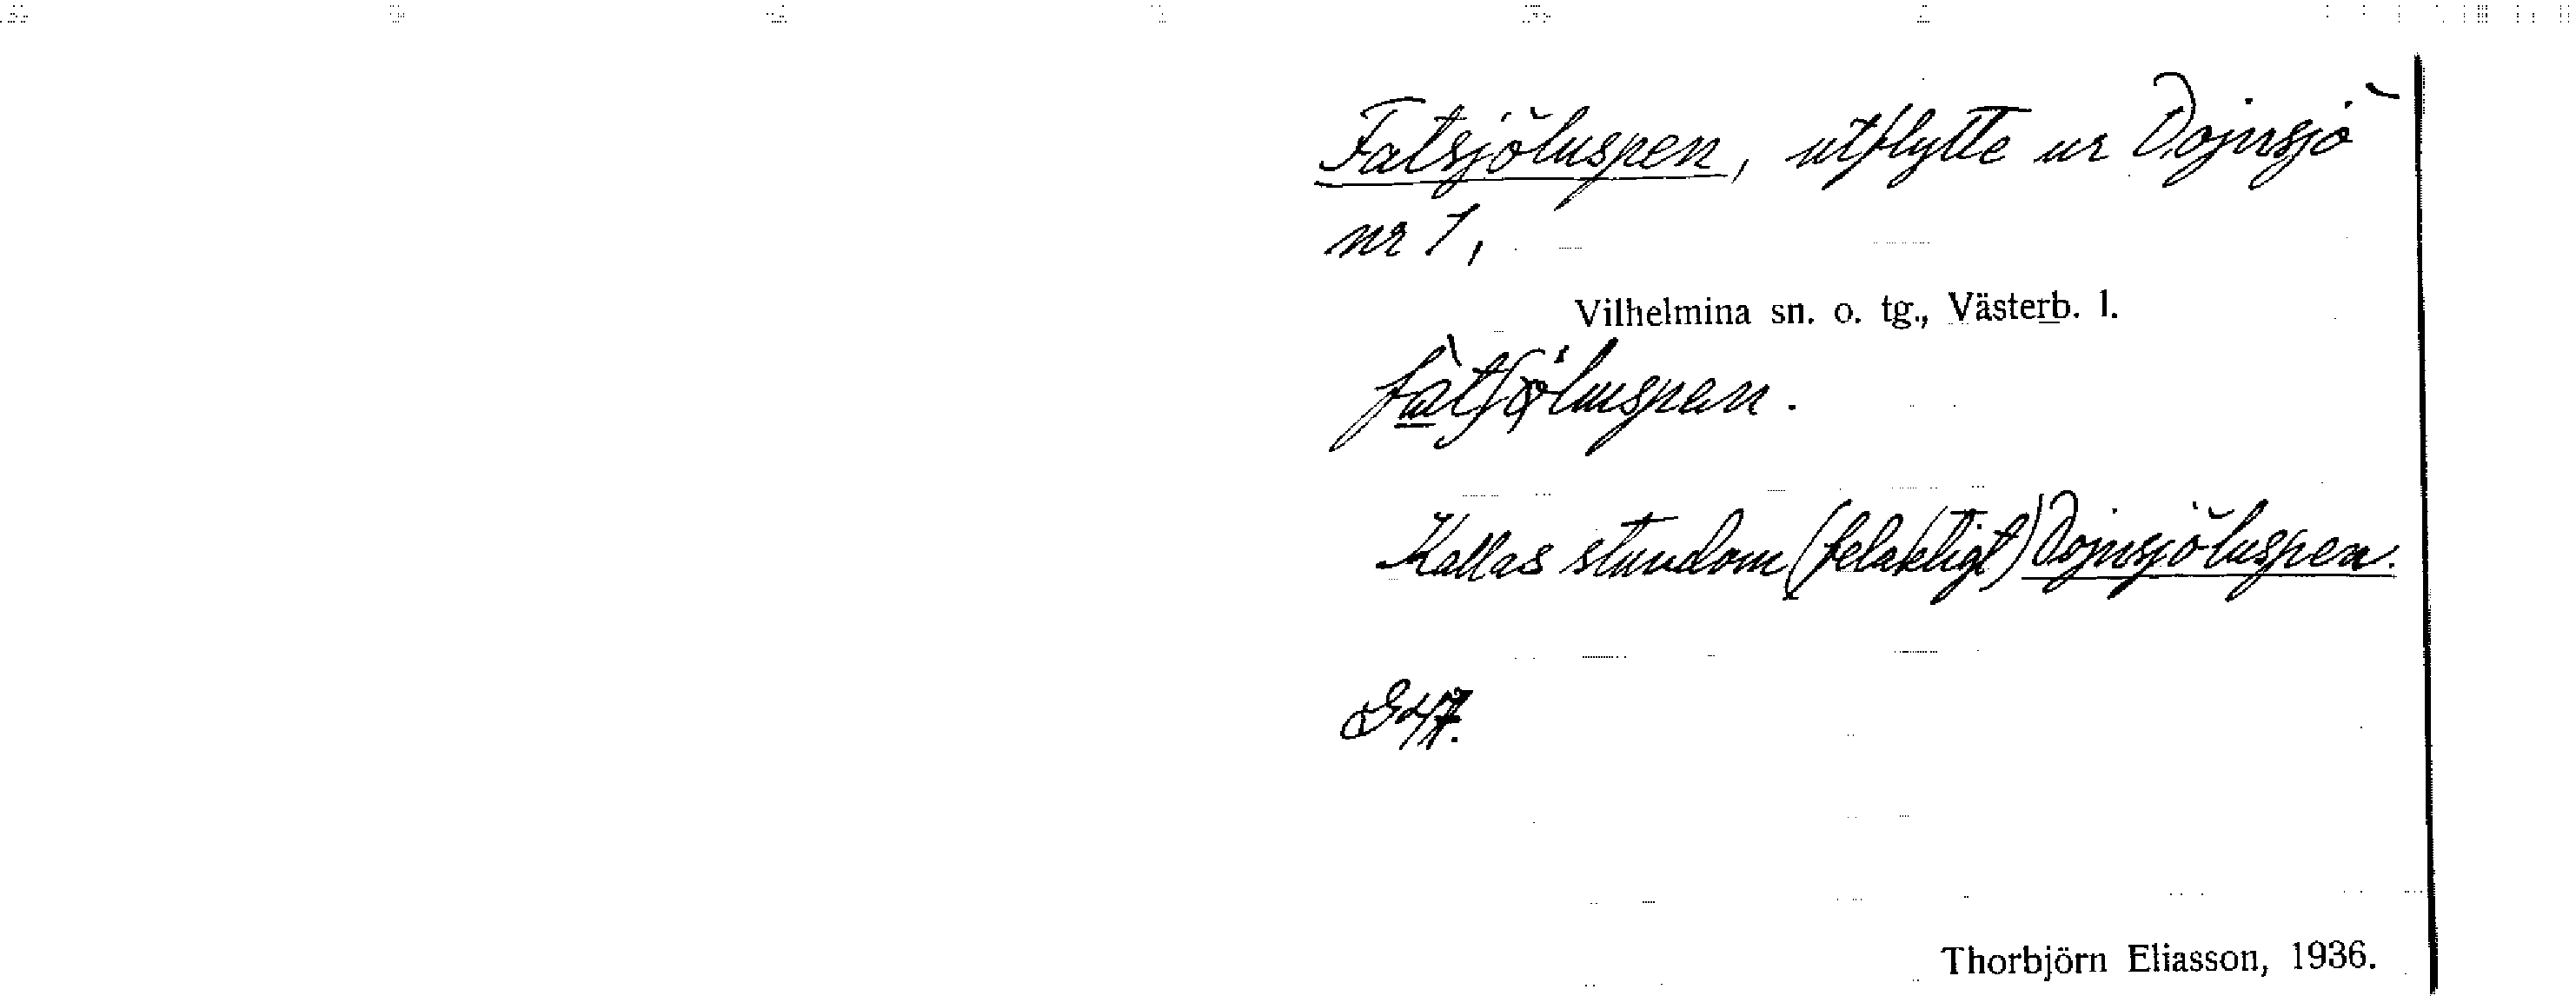 Fatsjöluspen, utflytte ur Dojnsjö
nr 1,
Vilhelmina sn. o. tg., Västerb. l.
Kallas stundom (felaktigt) Dojnsjöluspen.
Thorbjörn Eliasson, 1936.